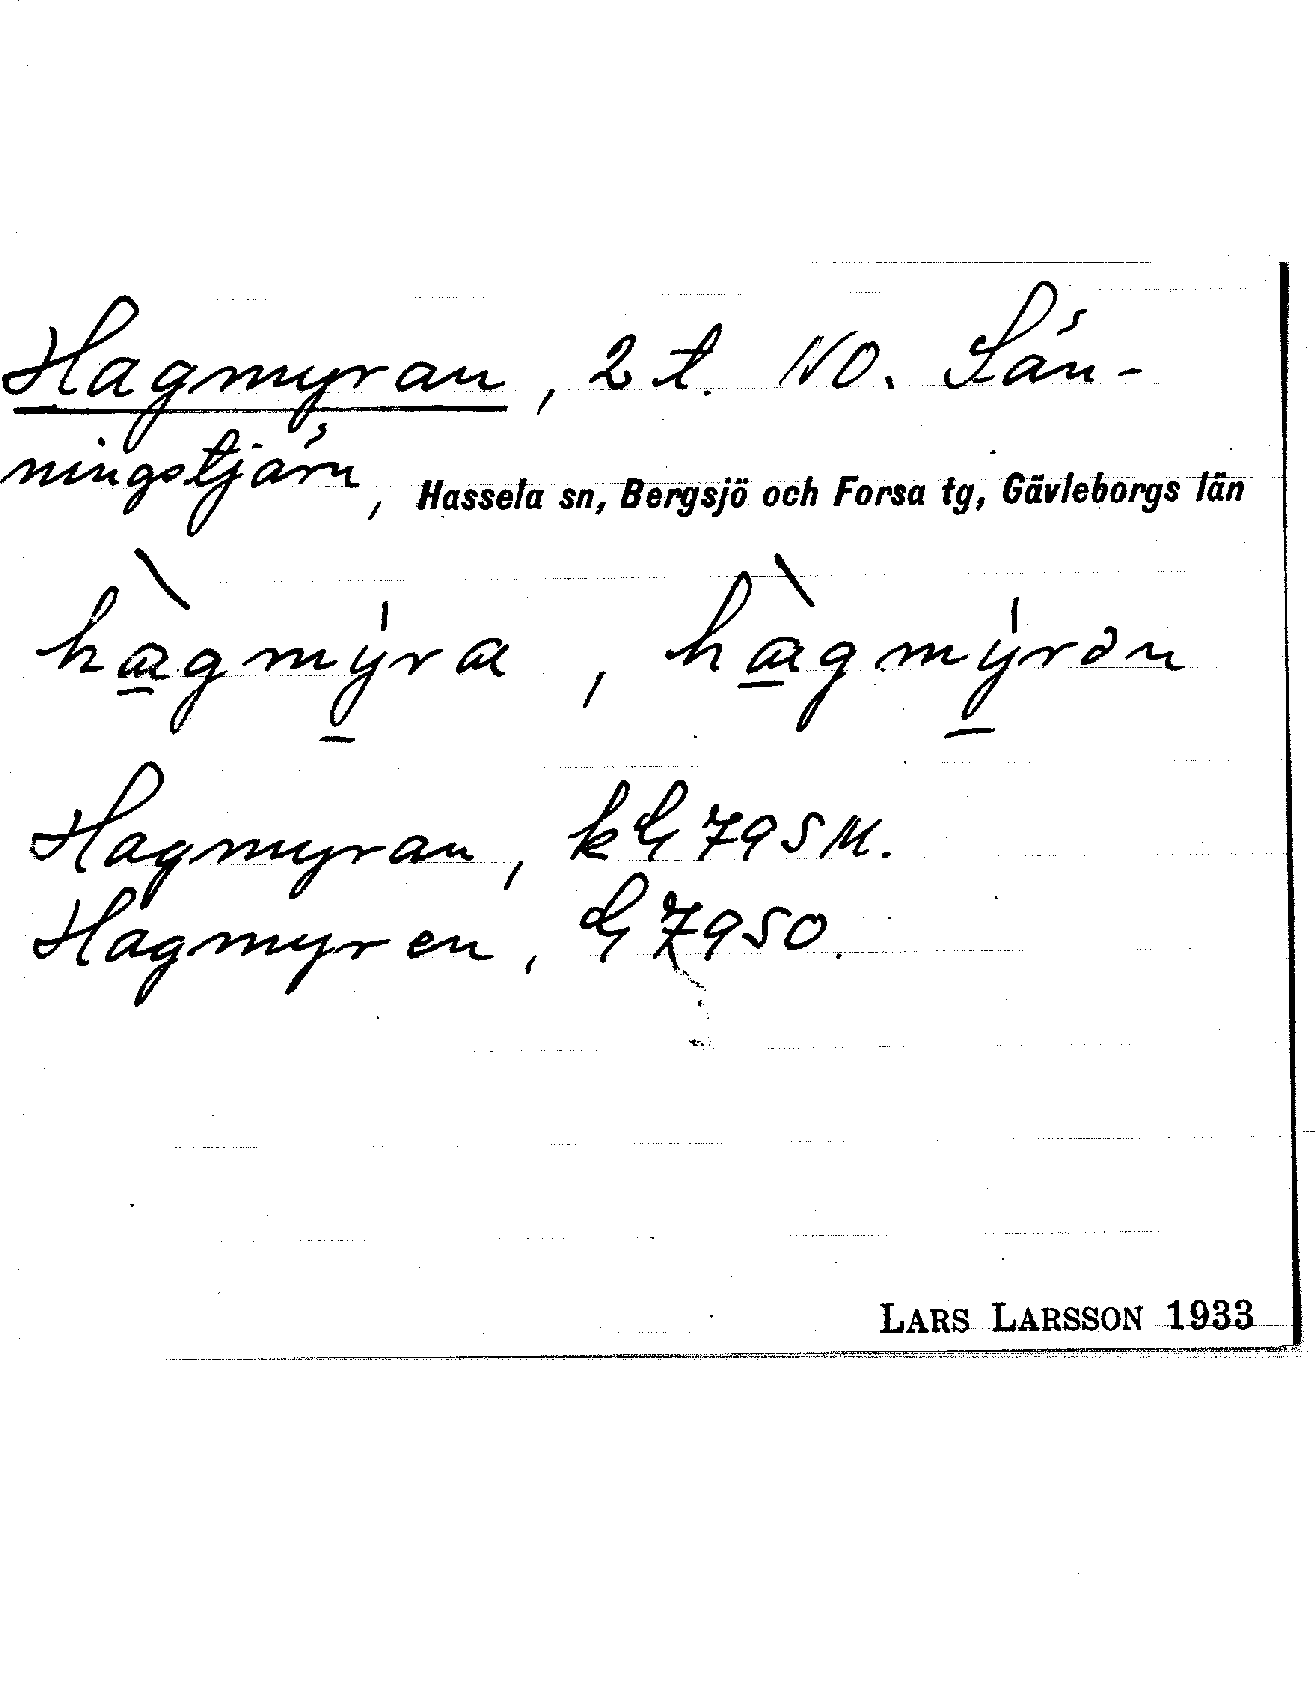 Hagmyran, 2 t. NO. Sän-
ningstjärn, Hassela sn, Bergsjö och Forsa tg, Gävleborgs län
hàgmýra, hàgmýrən
Hagmyran, kG 795 M.
Hagmyren, G 7950.
LARS LARSSON 1933